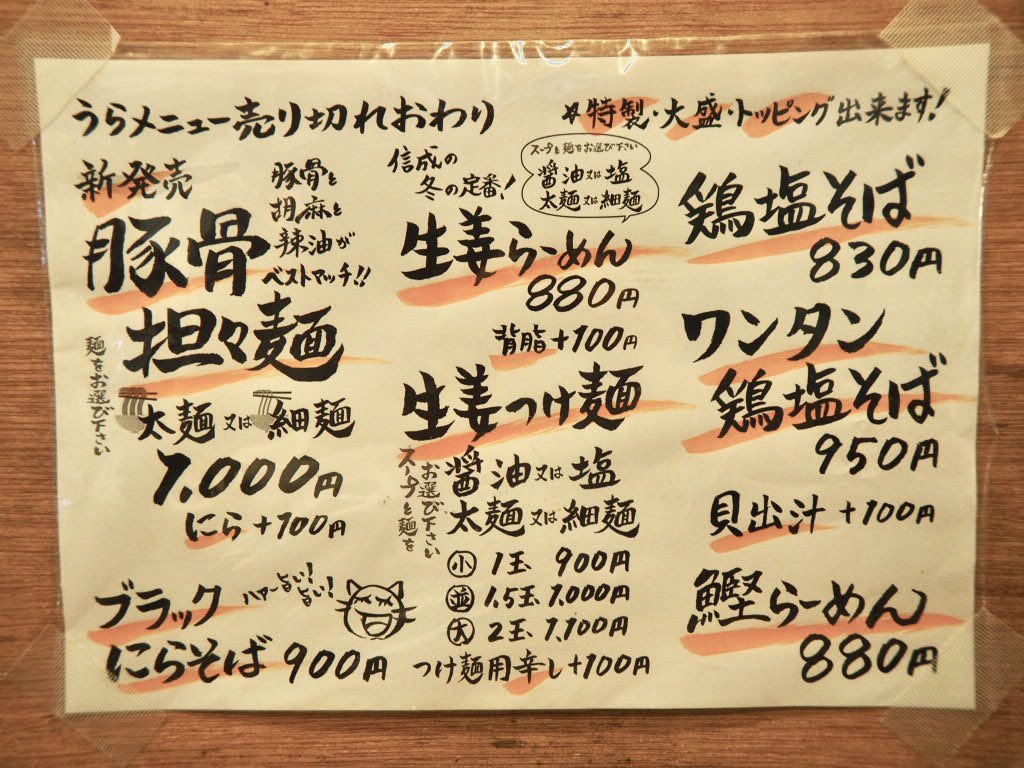 うらメニュー売り切れおわり
〆特製・大盛・トッピング出来ます!
新発売
豚骨と
胡麻と
辣油が
ベストマッチ!!
豚骨
担々麺
麺をお選び下さい
太麺又は細麺
1,000円
にら+100円
ブラック
ハマー旨い!旨い!
にらそば 900円
信成の
冬の定番!
スープと麺をお選び下さい
醤油又は塩
太麺又は細麺
生姜らーめん
880円
背脂+100円
生姜つけ麺
スープと麺を
お選び下さい
醤油又は塩
太麺又は細麺
小 1玉 900円
並 1.5玉 1,000円
大 2玉 1,100円
つけ麺用辛し+100円
鶏塩そば
830円
ワンタン
鶏塩そば
950円
貝出汁 +100円
鰹らーめん
880円